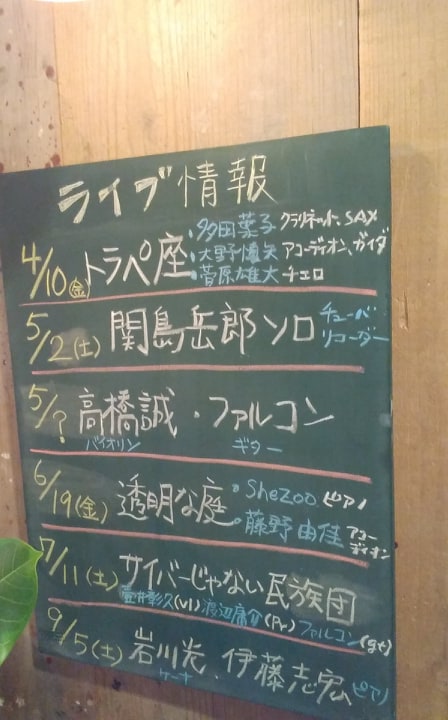 ライブ情報
4/10(金) トラペ座 ・多田葉子 クラリネット、SAX
・大野慎矢 アコーディオン、ガイダ
・菅原雄大 チェロ
5/2(土)関島岳郎ソロ チューバ リコーダー
5/? 高橋誠・ファルコン
バイオリン ギター
6/19(金) 透明な庭 ・Shezoo ピアノ
・藤野由佳 アコーディオン
7/11(土) サイバーじゃない民族団
壷井彰久(vl) 渡辺庸介(Pr) ファルコン(gt)
9/5(土) 岩川光 . 伊藤志宏 ピアノ
ケーナ